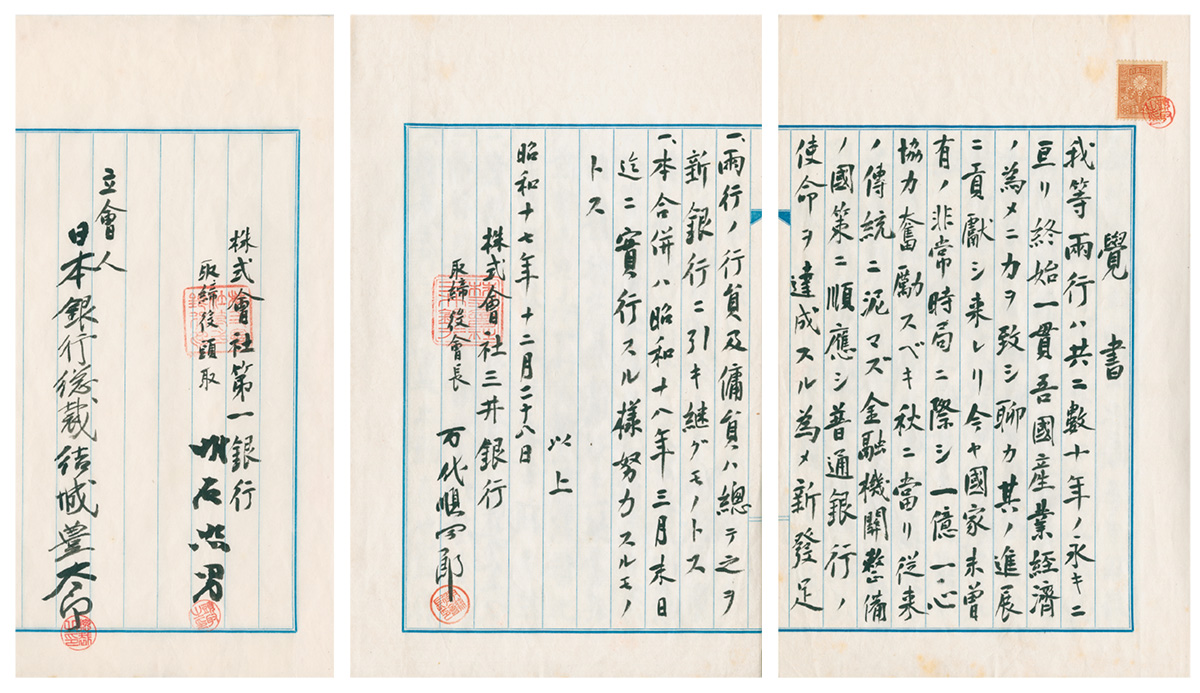 覺書
我等兩行ハ共ニ數十年ノ永キニ
亘リ終始一貫吾國産業経済
ノ為メニ力ヲ致シ聊カ其ノ進展
ニ貢献シ来レリ今ヤ國家未曽
有ノ非常時局ニ際シ一億一心
協力奮勵スベキ秋ニ當リ従来
ノ傳統ニ泥マズ金融機關整備
ノ國策ニ順應シ普通銀行ノ
使命ヲ達成スル為メ新發足
一、兩行ノ行員及傭員ハ總テ之ヲ
新銀行ニ引キ継グモノトス
一、本合併ハ昭和十八年三月末日
迄ニ實行スル様努力スルモノ
トス
以上
昭和十七年十二月二十八日
株式會社三井銀行
取締役會長
万代順四郎
株式會社第一銀行
取締役頭取
明石照男
立會人
日本銀行総裁結城豊太郎